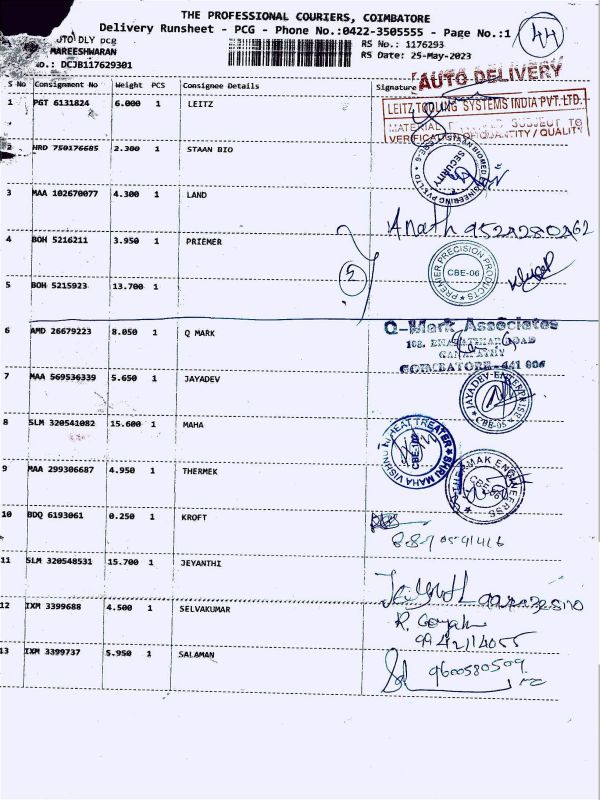 THE PROFESSIONAL COURIERS, COIMBATORE
Delivery Runsheet - PCG - Phone No.:0422-3505555 - Page No.:1
44
AUTO DLY pcg
MAREESHWARAN
No.: DCJB117629301
RS No.: 1176293
RS Date: 25-May-2023
AUTO DELIVERY
S No Consignment No Weight PCS Consignee Details Signature
LEITZ TOOLING SYSTEMS INDIA PVT. LTD.
MATERIAL SUBJECT TO
VERIFICATION OF QUANTITY / QUALITY
1 PGT 6131824 6.000 1 LEITZ
2 HRD 750176685 2.300 1 STAAN BIO
SECURITY
3 MAA 102670077 4.300 1 LAND
4 BOH 5216211 3.950 1 PRIEMER
PREMIER PRECISION PRODUCTS
CBE-06
5 BOH 5215923 13.700 1
5
Q-Mark Associates
102, BHARATHIAR ROAD
GANAPATHY
COIMBATORE - 641 006
6 AMD 26679223 8.050 1 Q MARK
7 MAA 569536339 5.650 1 JAYADEV
JAYADEV ENTERPRISE
CBE-05
8 SLM 320541082 15.600 1 MAHA
SHRI MAHA VISHNU HEAT TREATER
9 MAA 299306687 4.950 1 THERMEK
THERMAK ENGINEERSS
10 BDQ 6193061 0.250 1 KROFT
11 SLM 320548531 15.700 1 JEYANTHI
12 IXM 3399688 4.500 1 SELVAKUMAR
9942114055
13 IXM 3399737 5.950 1 SALAMAN
9600580509